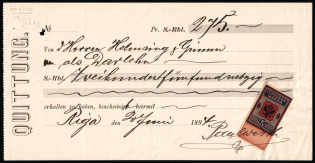 QUITTUNG.
№ Pr. S.-Rbl. 275.
Von d Herren Helmsing & Grimm
als Darlehn
S.-Rbl. Zweihundertfünfundsiebzig
erhalten zu haben, bescheinigt hiermit
Riga den Juni 189